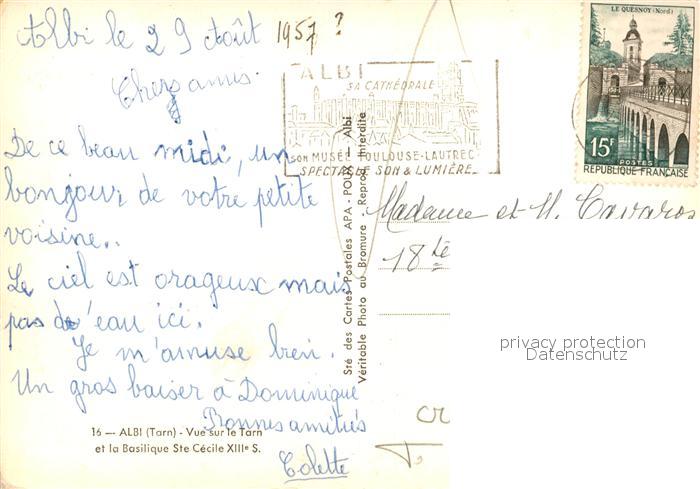 Albi le 29 Août 1957 ?
Chers amis.
De ce beau midi, un
bonjour de votre petite
voisine..
Le ciel est orageux mais
pas d'eau ici.
Je m'amuse bien.
Un gros baiser à Dominique
Bonnes amitiés
Colette
16 — ALBI (Tarn) - Vue sur le Tarn
et la Basilique Ste Cécile XIIIe S.
Sté des Cartes Postales APA - POUX Albi
Véritable Photo au Bromure - Reprod. Interdite
ALBI
SA CATHÉDRALE
SON MUSÉE TOULOUSE-LAUTREC
SPECTACLE SON & LUMIÈRE
LE QUESNOY (Nord)
15F
POSTES
REPUBLIQUE FRANÇAISE
Madame et M. Cavaros
18 
privacy protection
Datenschutz